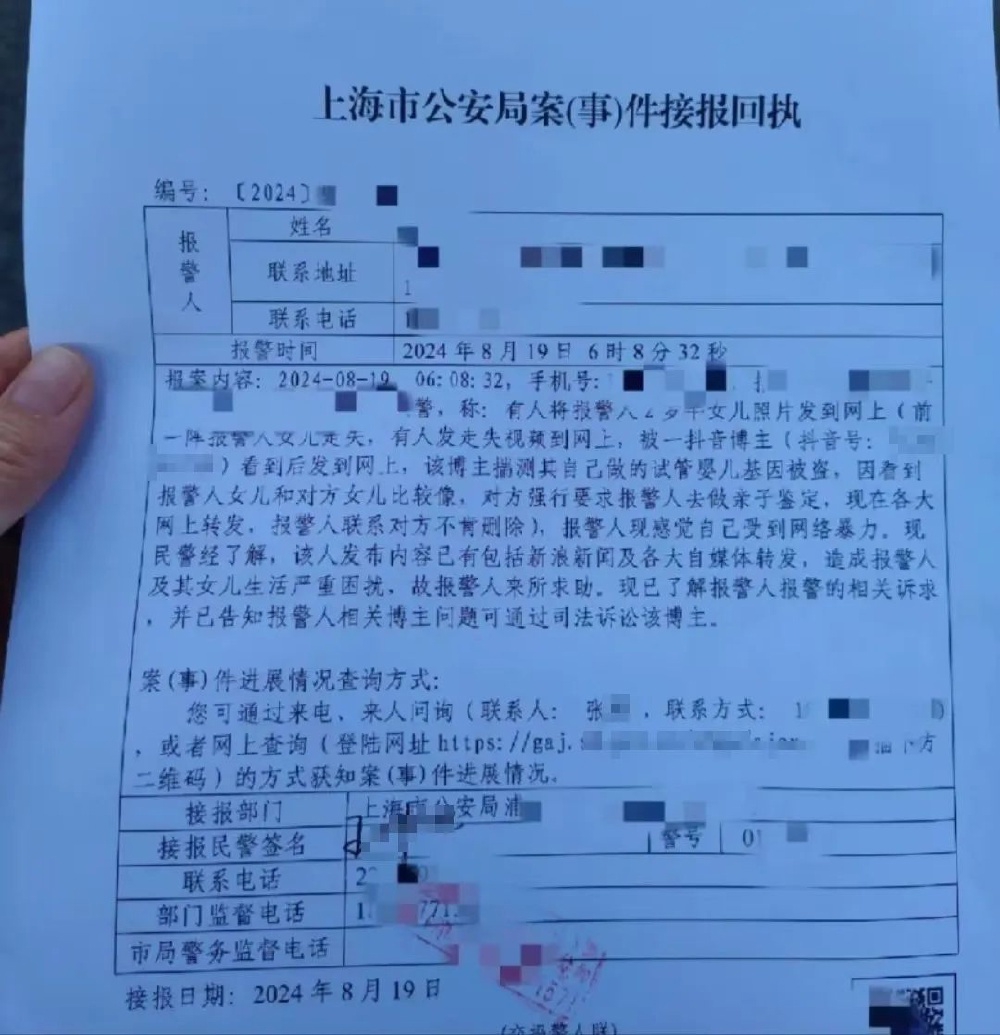 上海市公安局案(事)件接报回执
编号：〔2024〕
报警人
姓名
联系地址
1
联系电话
报警时间 2024 年 8 月 19 日 6 时 8 分 32 秒
报案内容：2024-08-19 06:08:32，手机号：
警，称：有人将报警人 2 岁半女儿照片发到网上（前
一阵报警人女儿走失，有人发走失视频到网上，被一抖音博主（抖音号：
）看到后发到网上，该博主揣测其自己做的试管婴儿基因被盗，因看到
报警人女儿和对方女儿比较像，对方强行要求报警人去做亲子鉴定，现在各大
网上转发，报警人联系对方不肯删除），报警人现感觉自己受到网络暴力。现
民警经了解，该人发布内容已有包括新浪新闻及各大自媒体转发，造成报警人
及其女儿生活严重困扰，故报警人来所求助。现已了解报警人报警的相关诉求
，并已告知报警人相关博主问题可通过司法诉讼该博主。
案(事)件进展情况查询方式：
您可通过来电、来人问询（联系人：张 ，联系方式：1 ）
，或者网上查询（登陆网址https://gaj.s 方
二维码）的方式获知案(事)件进展情况。
接报部门 上海市公安局浦
接报民警签名 警号 01
联系电话 2
部门监督电话 1
市局警务监督电话
接报日期：2024 年 8 月 19 日
(交报警人联)